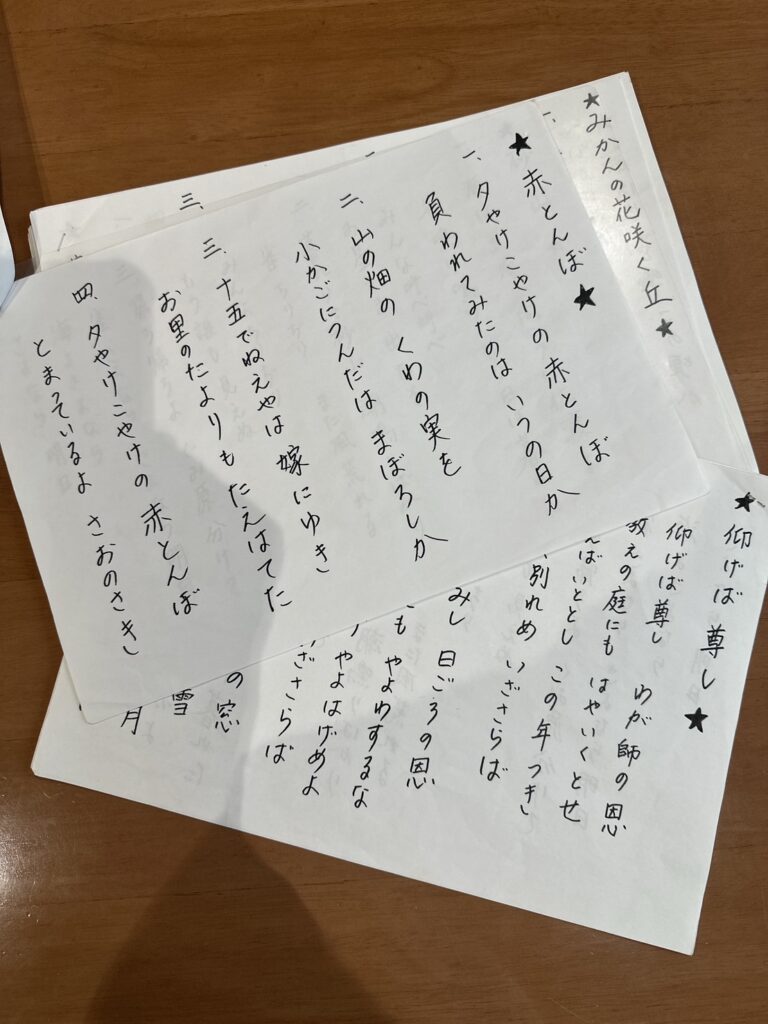 ★みかんの花咲く丘★
一、
三、
★ 赤とんぼ ★
一、夕やけこやけの 赤とんぼ
負われてみたのは いつの日か
二、山の畑の くわの実を
小かごにつんだは まぼろしか
三、十五でねえやは 嫁にゆき
お里のたよりも たえはてた
四、夕やけこやけの 赤とんぼ
とまっているよ さおのさき
★ 仰げば 尊し ★
仰げば 尊し わが師の恩
教えの庭にも はやいくとせ
んばいととし この年つき
別れめ いざさらば
みし 日ごろの恩
も やよわするな
やよはげめよ
ざさらば
の窓
雪
月